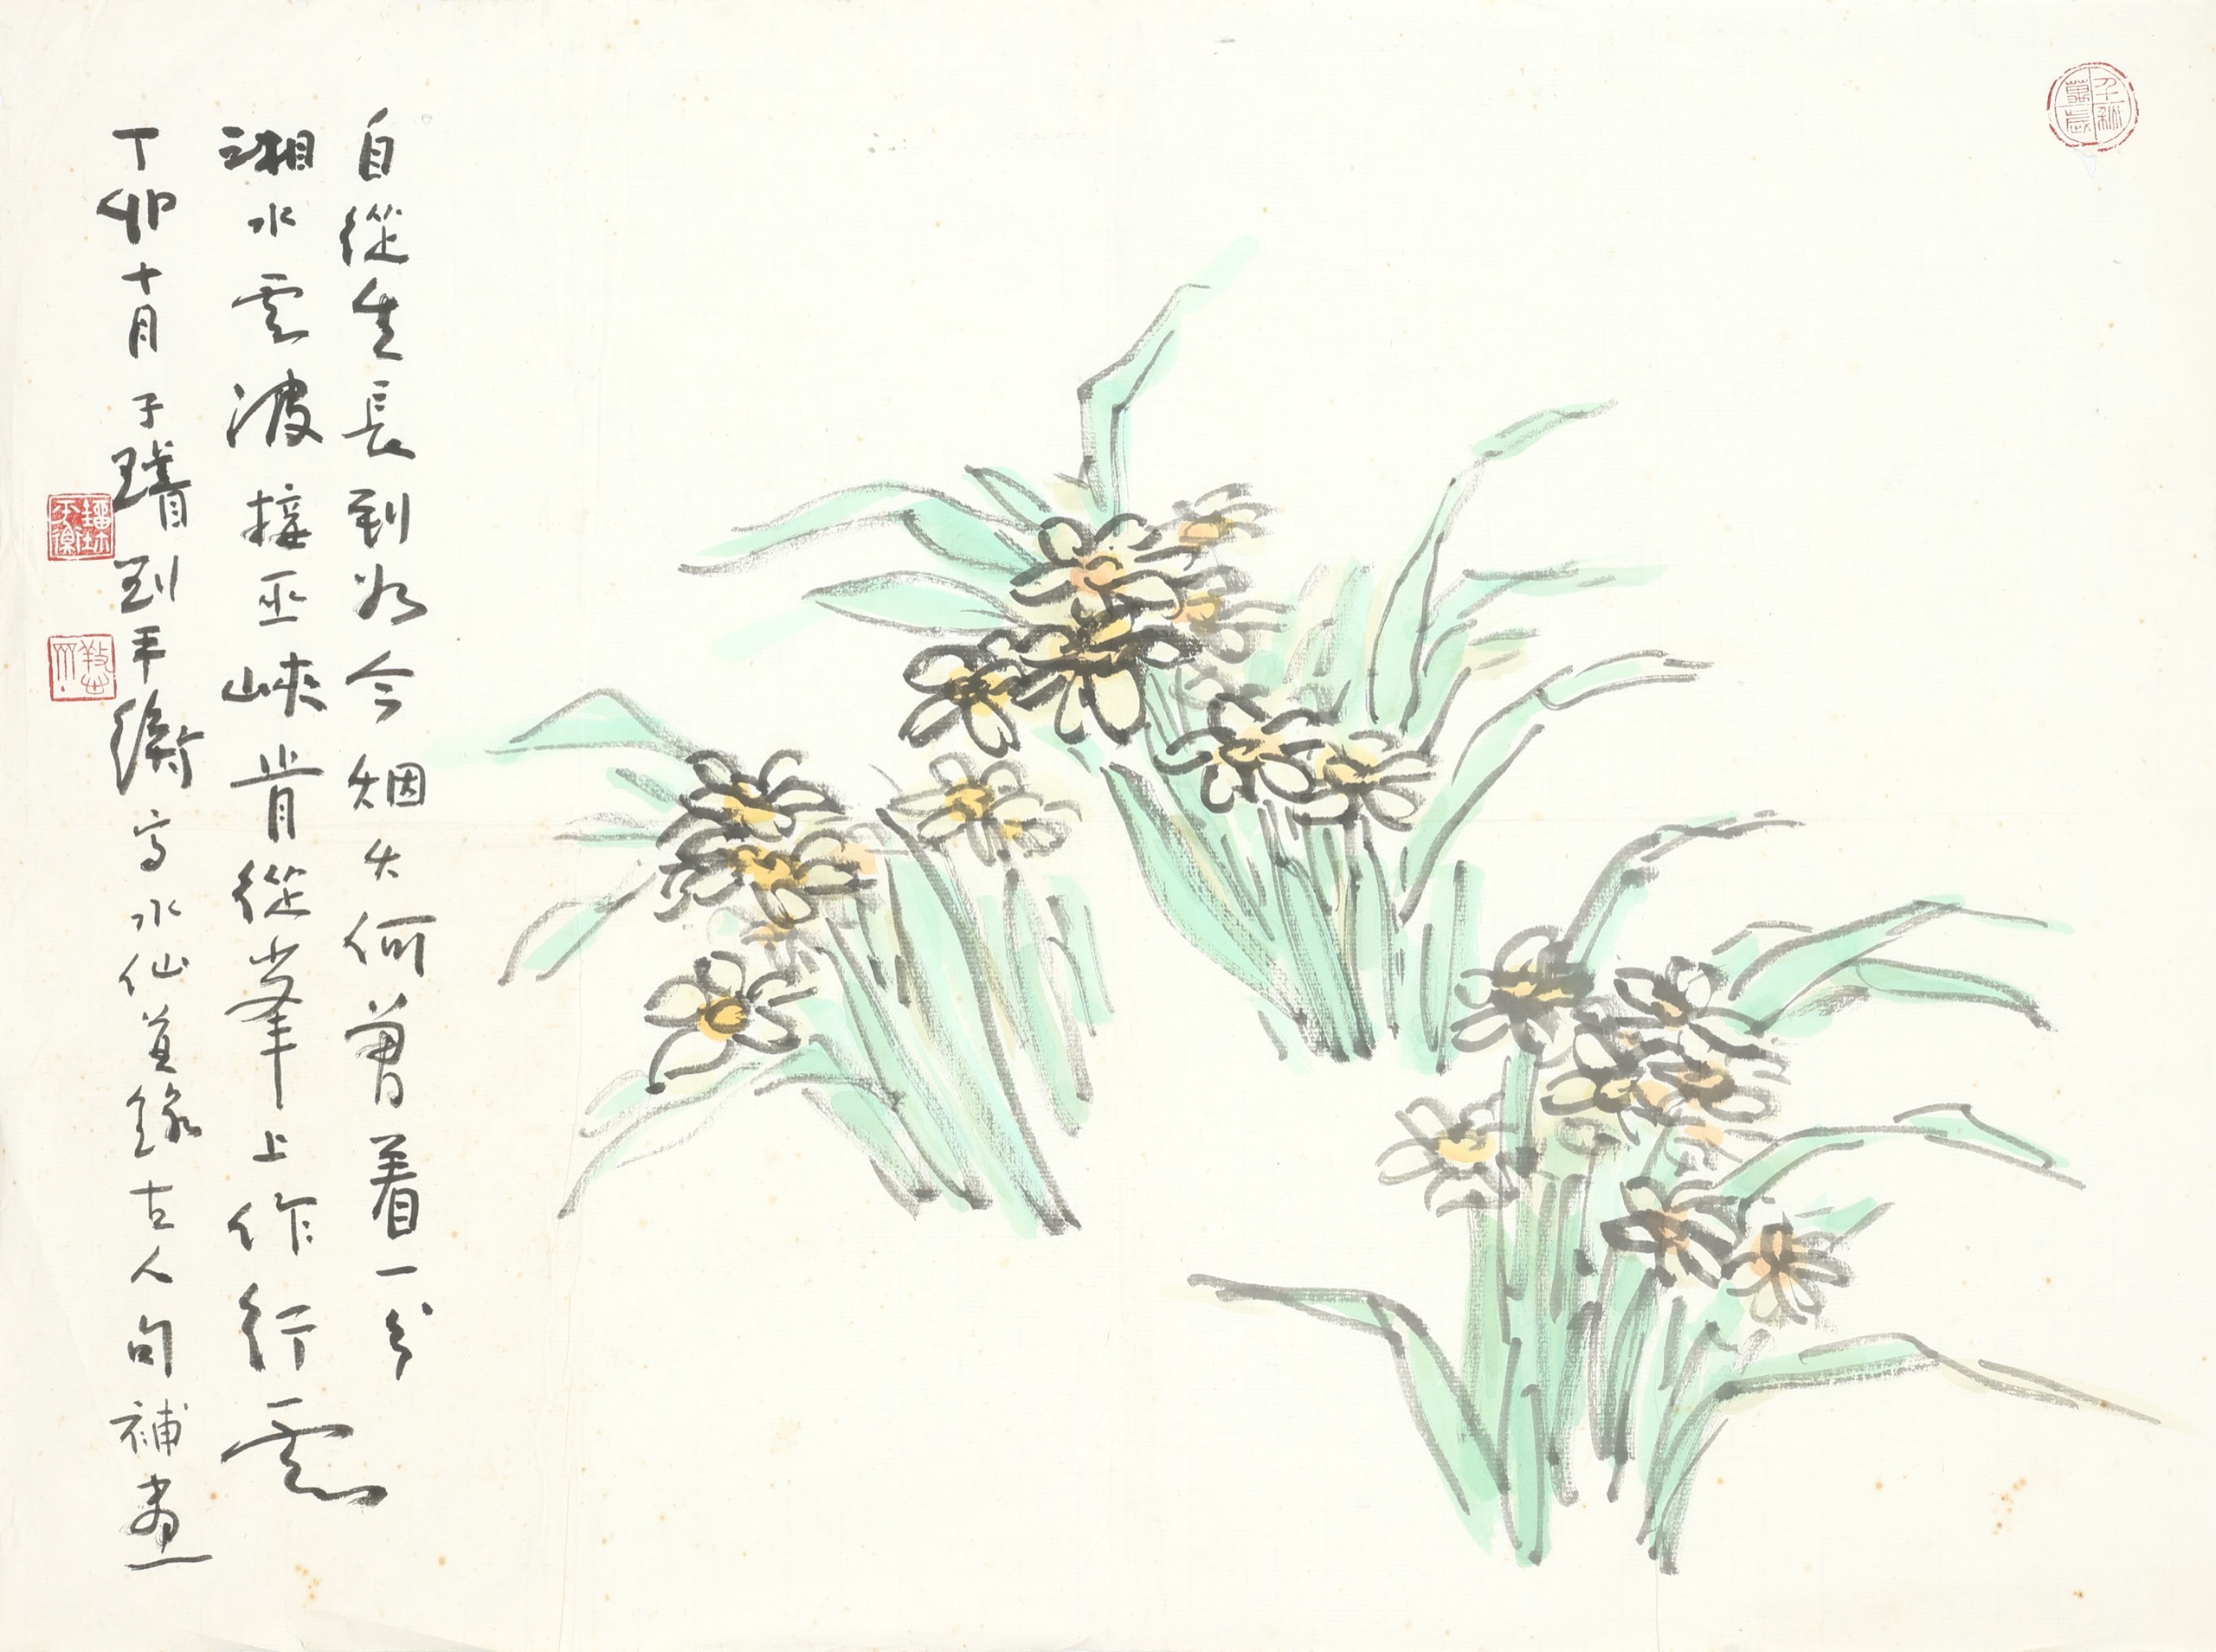 自從生長到如今烟火何曾着一分
湘水雲波接巫峽肯從峯上作行雲
丁卯十月子璿劉平衡寫水仙並錄古人句補畫